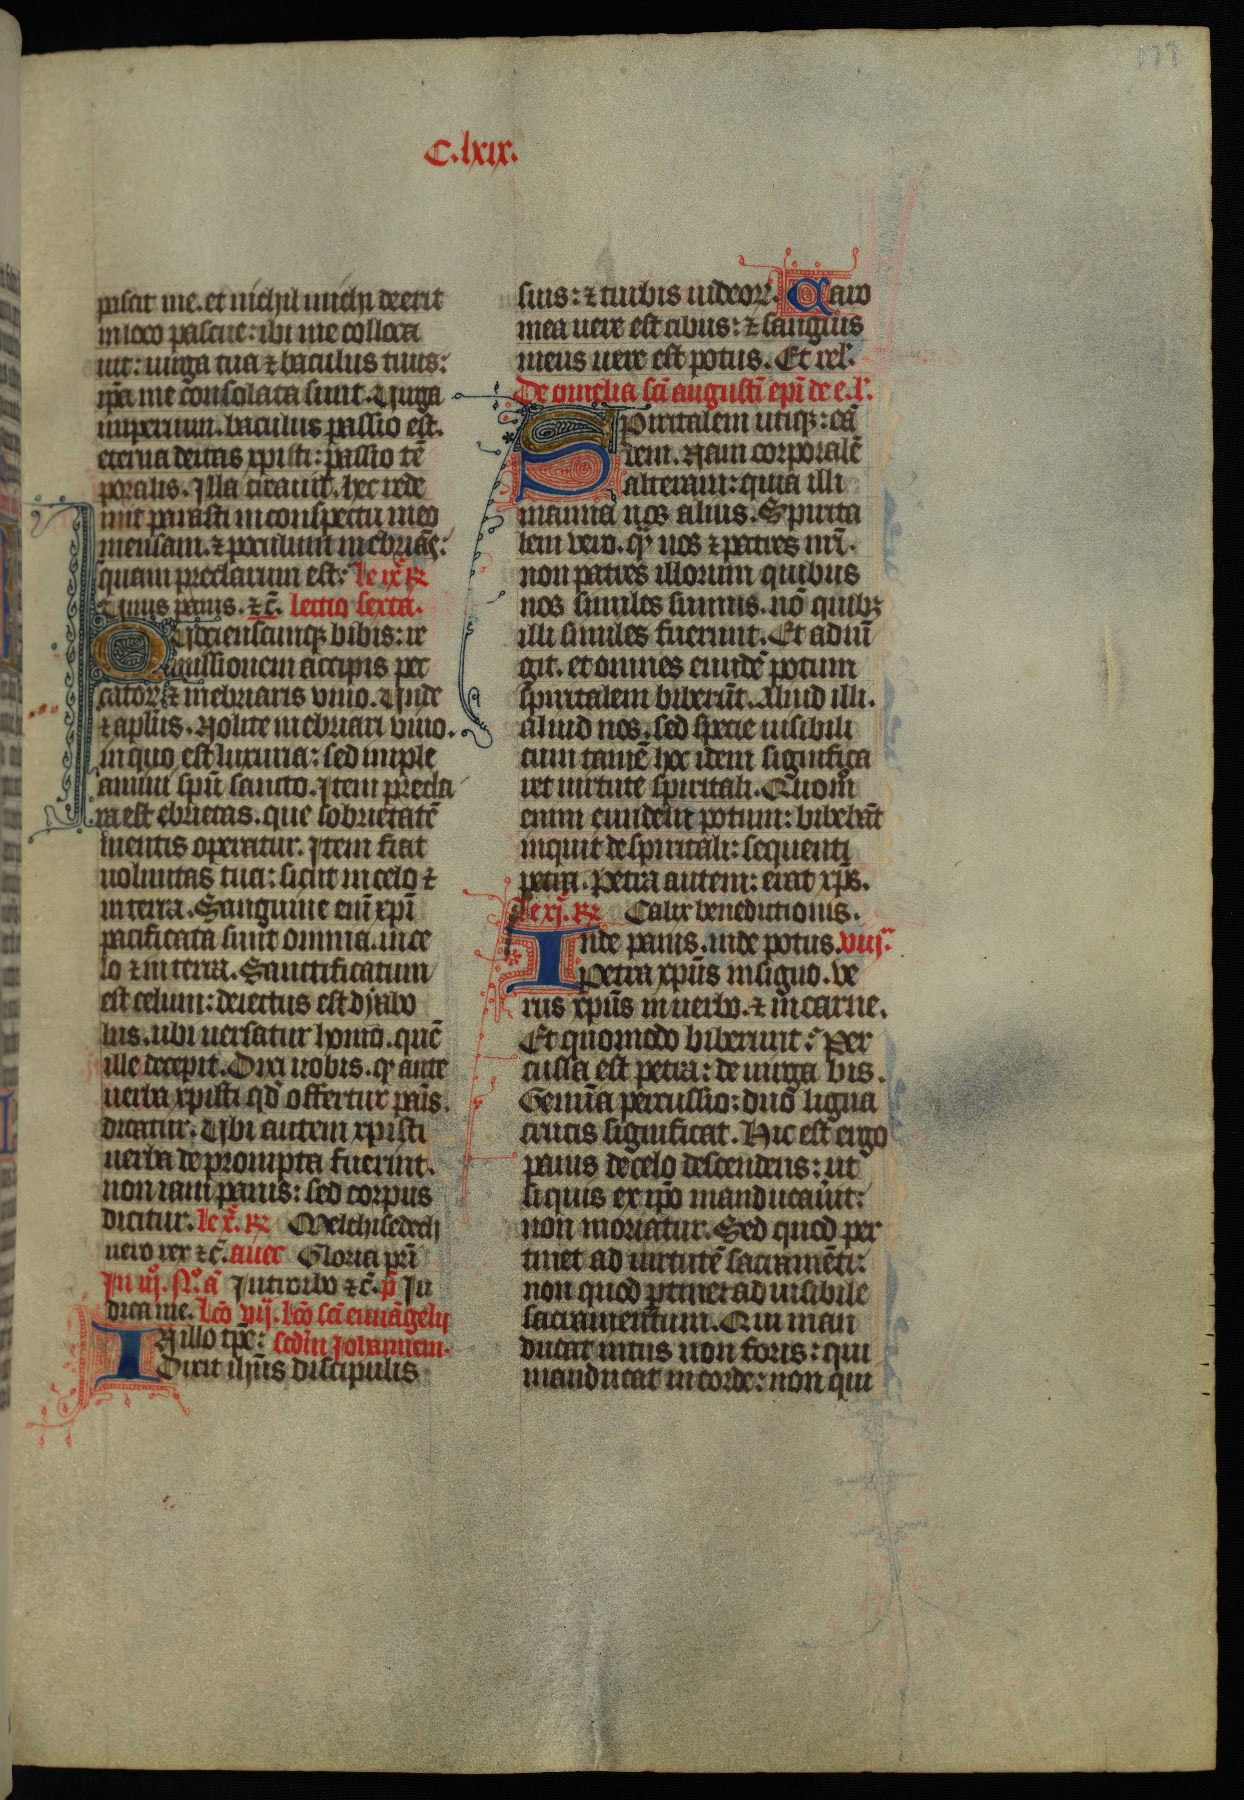 177
C.lxix.
pascit me. et nichil michi deerit
in loco pascue: ibi me colloca
uit: uirga tua ⁊ baculus tuus:
ip̄a me consolata sunt. Uirga
imperium. baculus passio est.
eterna deitas xp̄isti: passio tē
poralis. Illa creauit. hec rede
mit parasti in conspectu meo
mensam. ⁊ poculum inebriās:
quam preclarum est: le ix. ℟
Unus panis. ⁊ c̄. lectio sexta.
Quocienscunqꝫ bibis: re
missionem accipis pec
catorꝝ ⁊ inebriaris vino. Unde
⁊ apl̄us. Nolite inebriari vino.
in quo est luxuria: sed imple
amini sp̄u sancto. Item precla
ra est ebrietas. que sobrietatē
mentis operatur. Item fiat
uoluntas tua: sicut in celo ⁊
in terra. Sanguine enī xp̄i
pacificata sunt omnia. in ce
lo ⁊ in terra. Sanctificatum
est celum: deiectus est dyabo
lus. ubi uersatur homo. quē
ille decepit. Dixi uobis. ꝙ ante
uerba xp̄isti qd̄ offertur pāis.
dicatur. Ubi autem xp̄isti
uerba deprompta fuerint.
non iam panis: sed corpus
dicitur. le x. ℟ Melchisedech
uero rex ⁊ c̄. auer Gloria pr̄i
In iij. No. ā Introibo ⁊ c̄. p̄ Iu
dica me. Lc̄o vij. Lc̄o sc̄i euuāgelij
IN illo tp̄e: scd̄m Johannem.
Dixit ih̄us discipulis
suis: ⁊ turbis iudeorꝝ. Caro
mea uere est cibus: ⁊ sanguis
meus uere est potus. Et rel.
De omelia sc̄i augusti ep̄i de e.l.
Spiritalem utiqꝫ: eā
dem. Nam corporalē
alteram: quia illi
manna nos aliud. Spirita
lem vero. ꝙ nos ⁊ patres nr̄i.
non patres illorum quibus
nos similes sumus. nō quibꝫ
illi similes fuerunt. Et adiū
git. et omnes eundē potum
spiritalem biberūt. Aliud illi.
aliud nos. sed specie uisibili
cum tamē hoc idem significa
ret uirtute spiritali. Quom̄
enim eundem potum: bibebāt
inquit de spiritali: sequenti
petra. Petra autem: erat xp̄s.
le xj. ℟ Calix benedictionis.
Inde panis. inde potus. viij.
Petra xp̄us in signo. ve
rus xp̄us in uerbo. ⁊ in carne.
Et quomodo biberunt: Per
cussa est petra: de uirga bis.
Gemīa percussio: duo ligna
crucis significat. Hic est ergo
panis de celo descendens: ut
siquis ex ip̄o manducauit:
non moriatur. Sed quod per
tinet ad uirtutē sacramēti:
non quod ꝑtinet ad uisibile
sacramentum. Qui man
ducat intus non foris: qui
manducat in corde: non qui